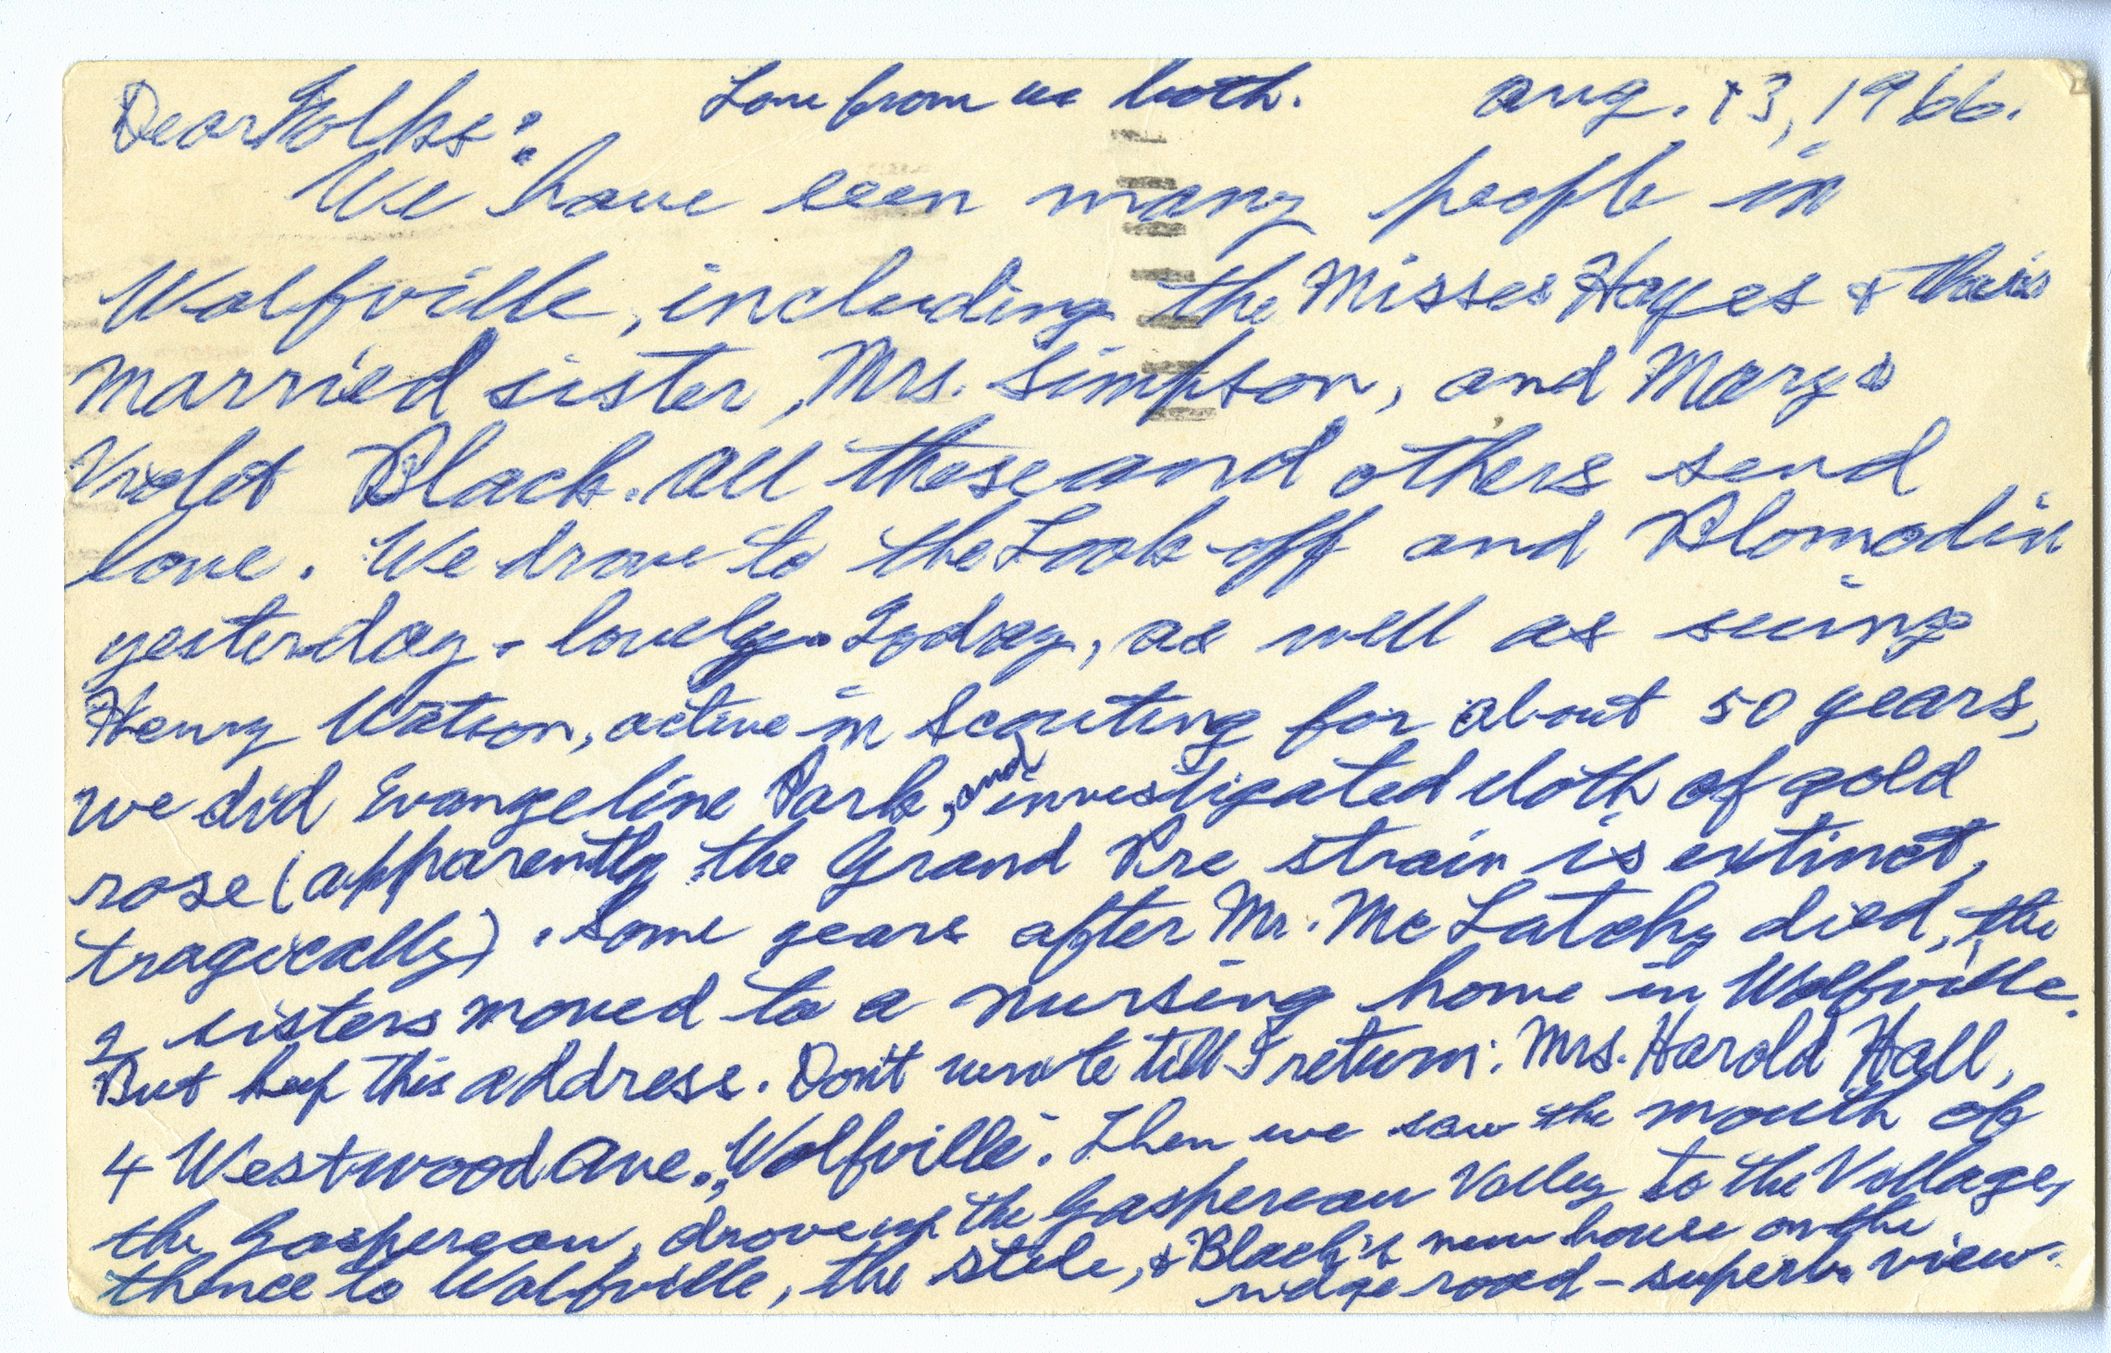 Dear Folks: Love from us both. Aug. 13, 1966.
We have seen many people in
Wolfville, including the Misses Hayes & their
married sister, Mrs. Simpson, and Mary &
Violet Black. All these and others send
love. We drove to the Look-off and Blomodin
yesterday - lovely. Today, as well as seeing
Henry Watson, active in Scouting for about 50 years,
we did Evangeline Park, and investigated cloth of gold
rose (apparently the Grand Pre strain is extinct,
tragically). Some years after Mr. McLatchy died, the
2 sisters moved to a nursing home in Wolfville.
But keep this address. Don't write till I return: Mrs. Harold Hall,
4 Westwood Ave., Wolfville. Then we saw the mouth of
the Gaspereau, drove up the Gaspereau Valley to the Village,
thence to Wolfville, the stele, & Black's new house on the
ridge road - superb view.